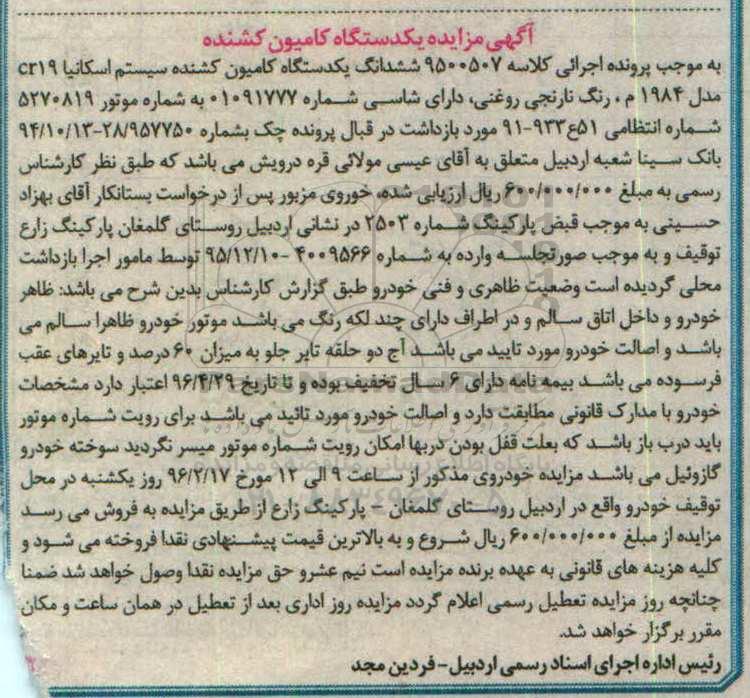 آگهی مزایده یکدستگاه کامیون کشنده
به موجب پرونده اجرائی کلاسه ۹۵۰۰۵۰۷ ششدانگ یکدستگاه کامیون کشنده سیستم اسکانیا cr۱۹
مدل ۱۹۸۴ م ، رنگ نارنجی روغنی، دارای شاسی شماره ۰۱۰۹۱۷۷۷ به شماره موتور ۵۲۷۰۸۱۹
شماره انتظامی ۵۱ع۹۳۳-۹۱ مورد بازداشت در قبال پرونده چک بشماره ۲۸/۹۵۷۷۵۰-۹۴/۱۰/۱۳
بانک سینا شعبه اردبیل متعلق به آقای عیسی مولائی قره درویش می باشد که طبق نظر کارشناس
رسمی به مبلغ ۶۰۰/۰۰۰/۰۰۰ ریال ارزیابی شده، خوروی مزبور پس از درخواست بستانکار آقای بهزاد
حسینی به موجب قبض پارکینگ شماره ۲۵۰۳ در نشانی اردبیل روستای گلمغان پارکینگ زارع
توقیف و به موجب صورتجلسه وارده به شماره ۴۰۰۹۵۶۶ -۹۵/۱۲/۱۰ توسط مامور اجرا بازداشت
محلی گردیده است وضعیت ظاهری و فنی خودرو طبق گزارش کارشناس بدین شرح می باشد: ظاهر
خودرو و داخل اتاق سالم و در اطراف دارای چند لکه رنگ می باشد موتور خودرو ظاهرا سالم می
باشد و اصالت خودرو مورد تایید می باشد آج دو حلقه تایر جلو به میزان ۶۰ درصد و تایرهای عقب
فرسوده می باشد بیمه نامه دارای ۶ سال تخفیف بوده و تا تاریخ ۹۶/۴/۲۹ اعتبار دارد مشخصات
خودرو با مدارک قانونی مطابقت دارد و اصالت خودرو مورد تائید می باشد برای رویت شماره موتور
باید درب باز باشد که بعلت قفل بودن دربها امکان رویت شماره موتور میسر نگردید سوخته خودرو
گازوئیل می باشد مزایده خودروی مذکور از ساعت ۹ الی ۱۲ مورخ ۹۶/۲/۱۷ روز یکشنبه در محل
توقیف خودرو واقع در اردبیل روستای گلمغان – پارکینگ زارع از طریق مزایده به فروش می رسد
مزایده از مبلغ ۶۰۰/۰۰۰/۰۰۰ ریال شروع و به بالاترین قیمت پیشنهادی نقدا فروخته می شود و
کلیه هزینه های قانونی به عهده برنده مزایده است نیم عشرو حق مزایده نقدا وصول خواهد شد ضمنا
چنانچه روز مزایده تعطیل رسمی اعلام گردد مزایده روز اداری بعد از تعطیل در همان ساعت و مکان
مقرر برگزار خواهد شد.
رئیس اداره اجرای اسناد رسمی اردبیل–فردین مجد